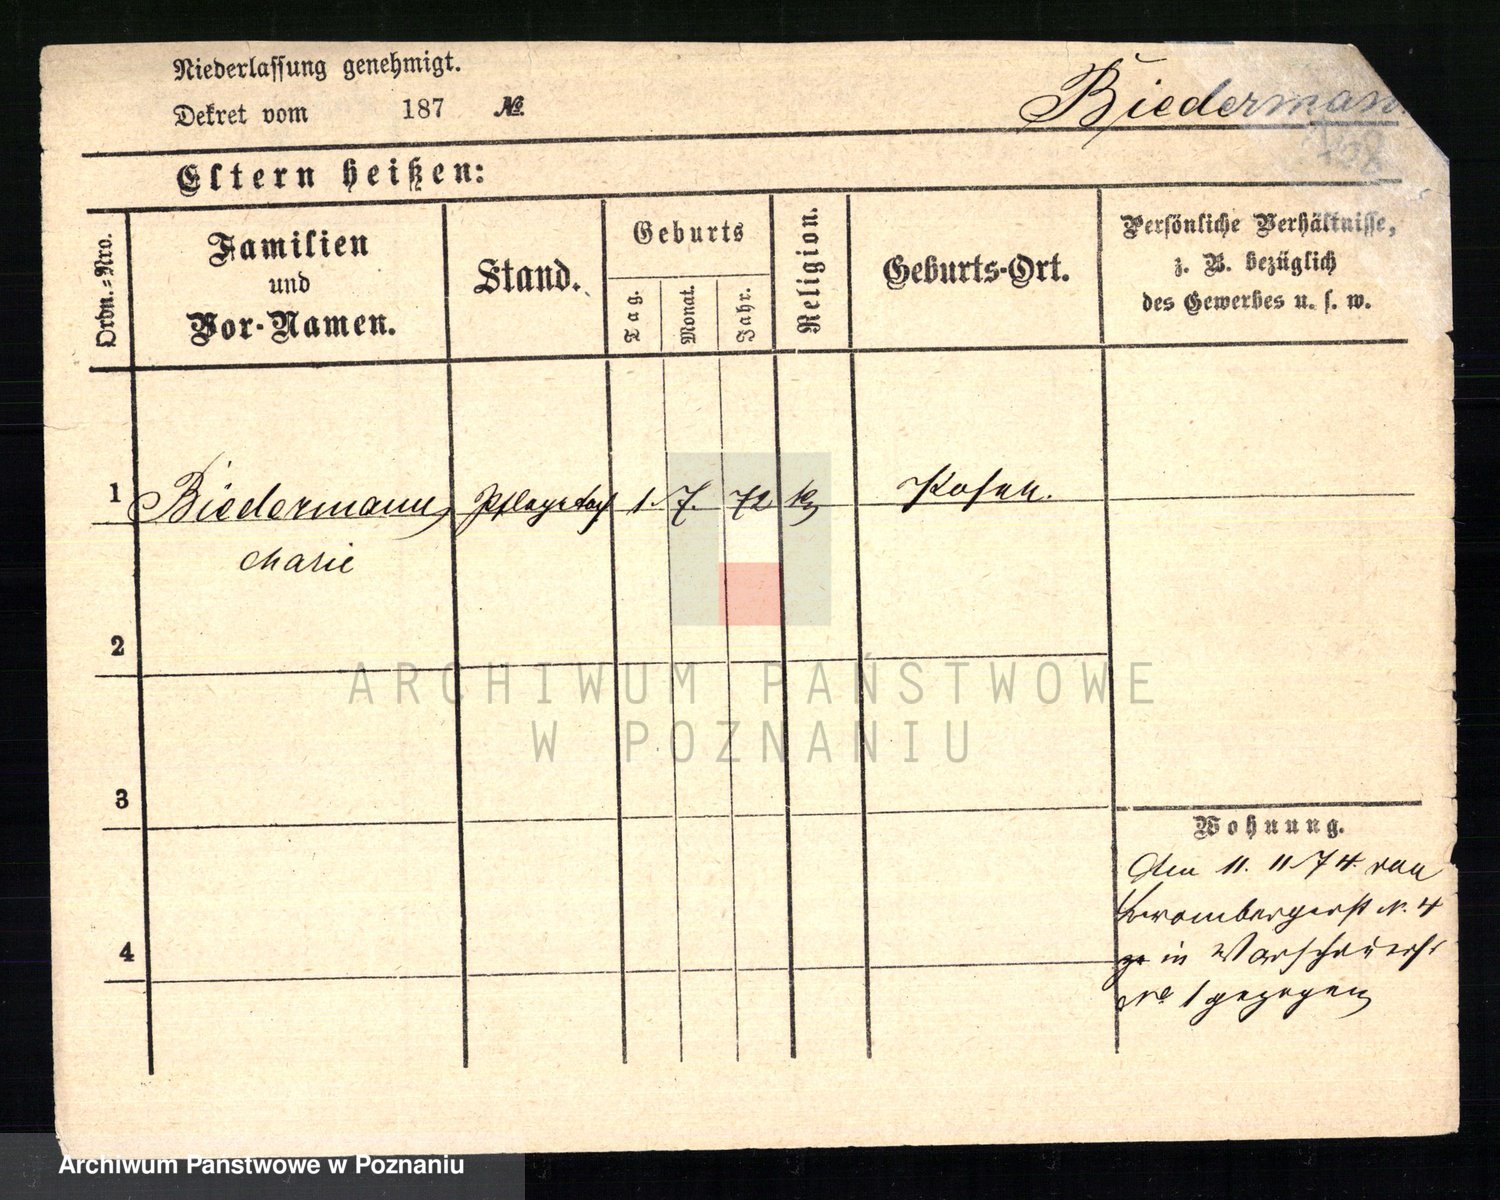 Niederlassung genehmigt.
Dekret vom 187 №
Biedermann
Eltern heißen:
Ordn.-Nro.
Familien
und
Vor-Namen.
Stand.
Geburts
Tag.
Monat.
Jahr.
Religion.
Geburts-Ort.
Persönliche Verhältnisse,
z. B. bezüglich
des Gewerbes u. s. w.
1 Biedermann, 1. 7. 72 Posen.
Marie
2
3
4
Wohnung.
Am 11. 11. 74 von
Brombergerst N. 4
in Warschauerst
No 1 gezogen
ARCHIWUM PAŃSTWOWE
W POZNANIU
Archiwum Państwowe w Poznaniu